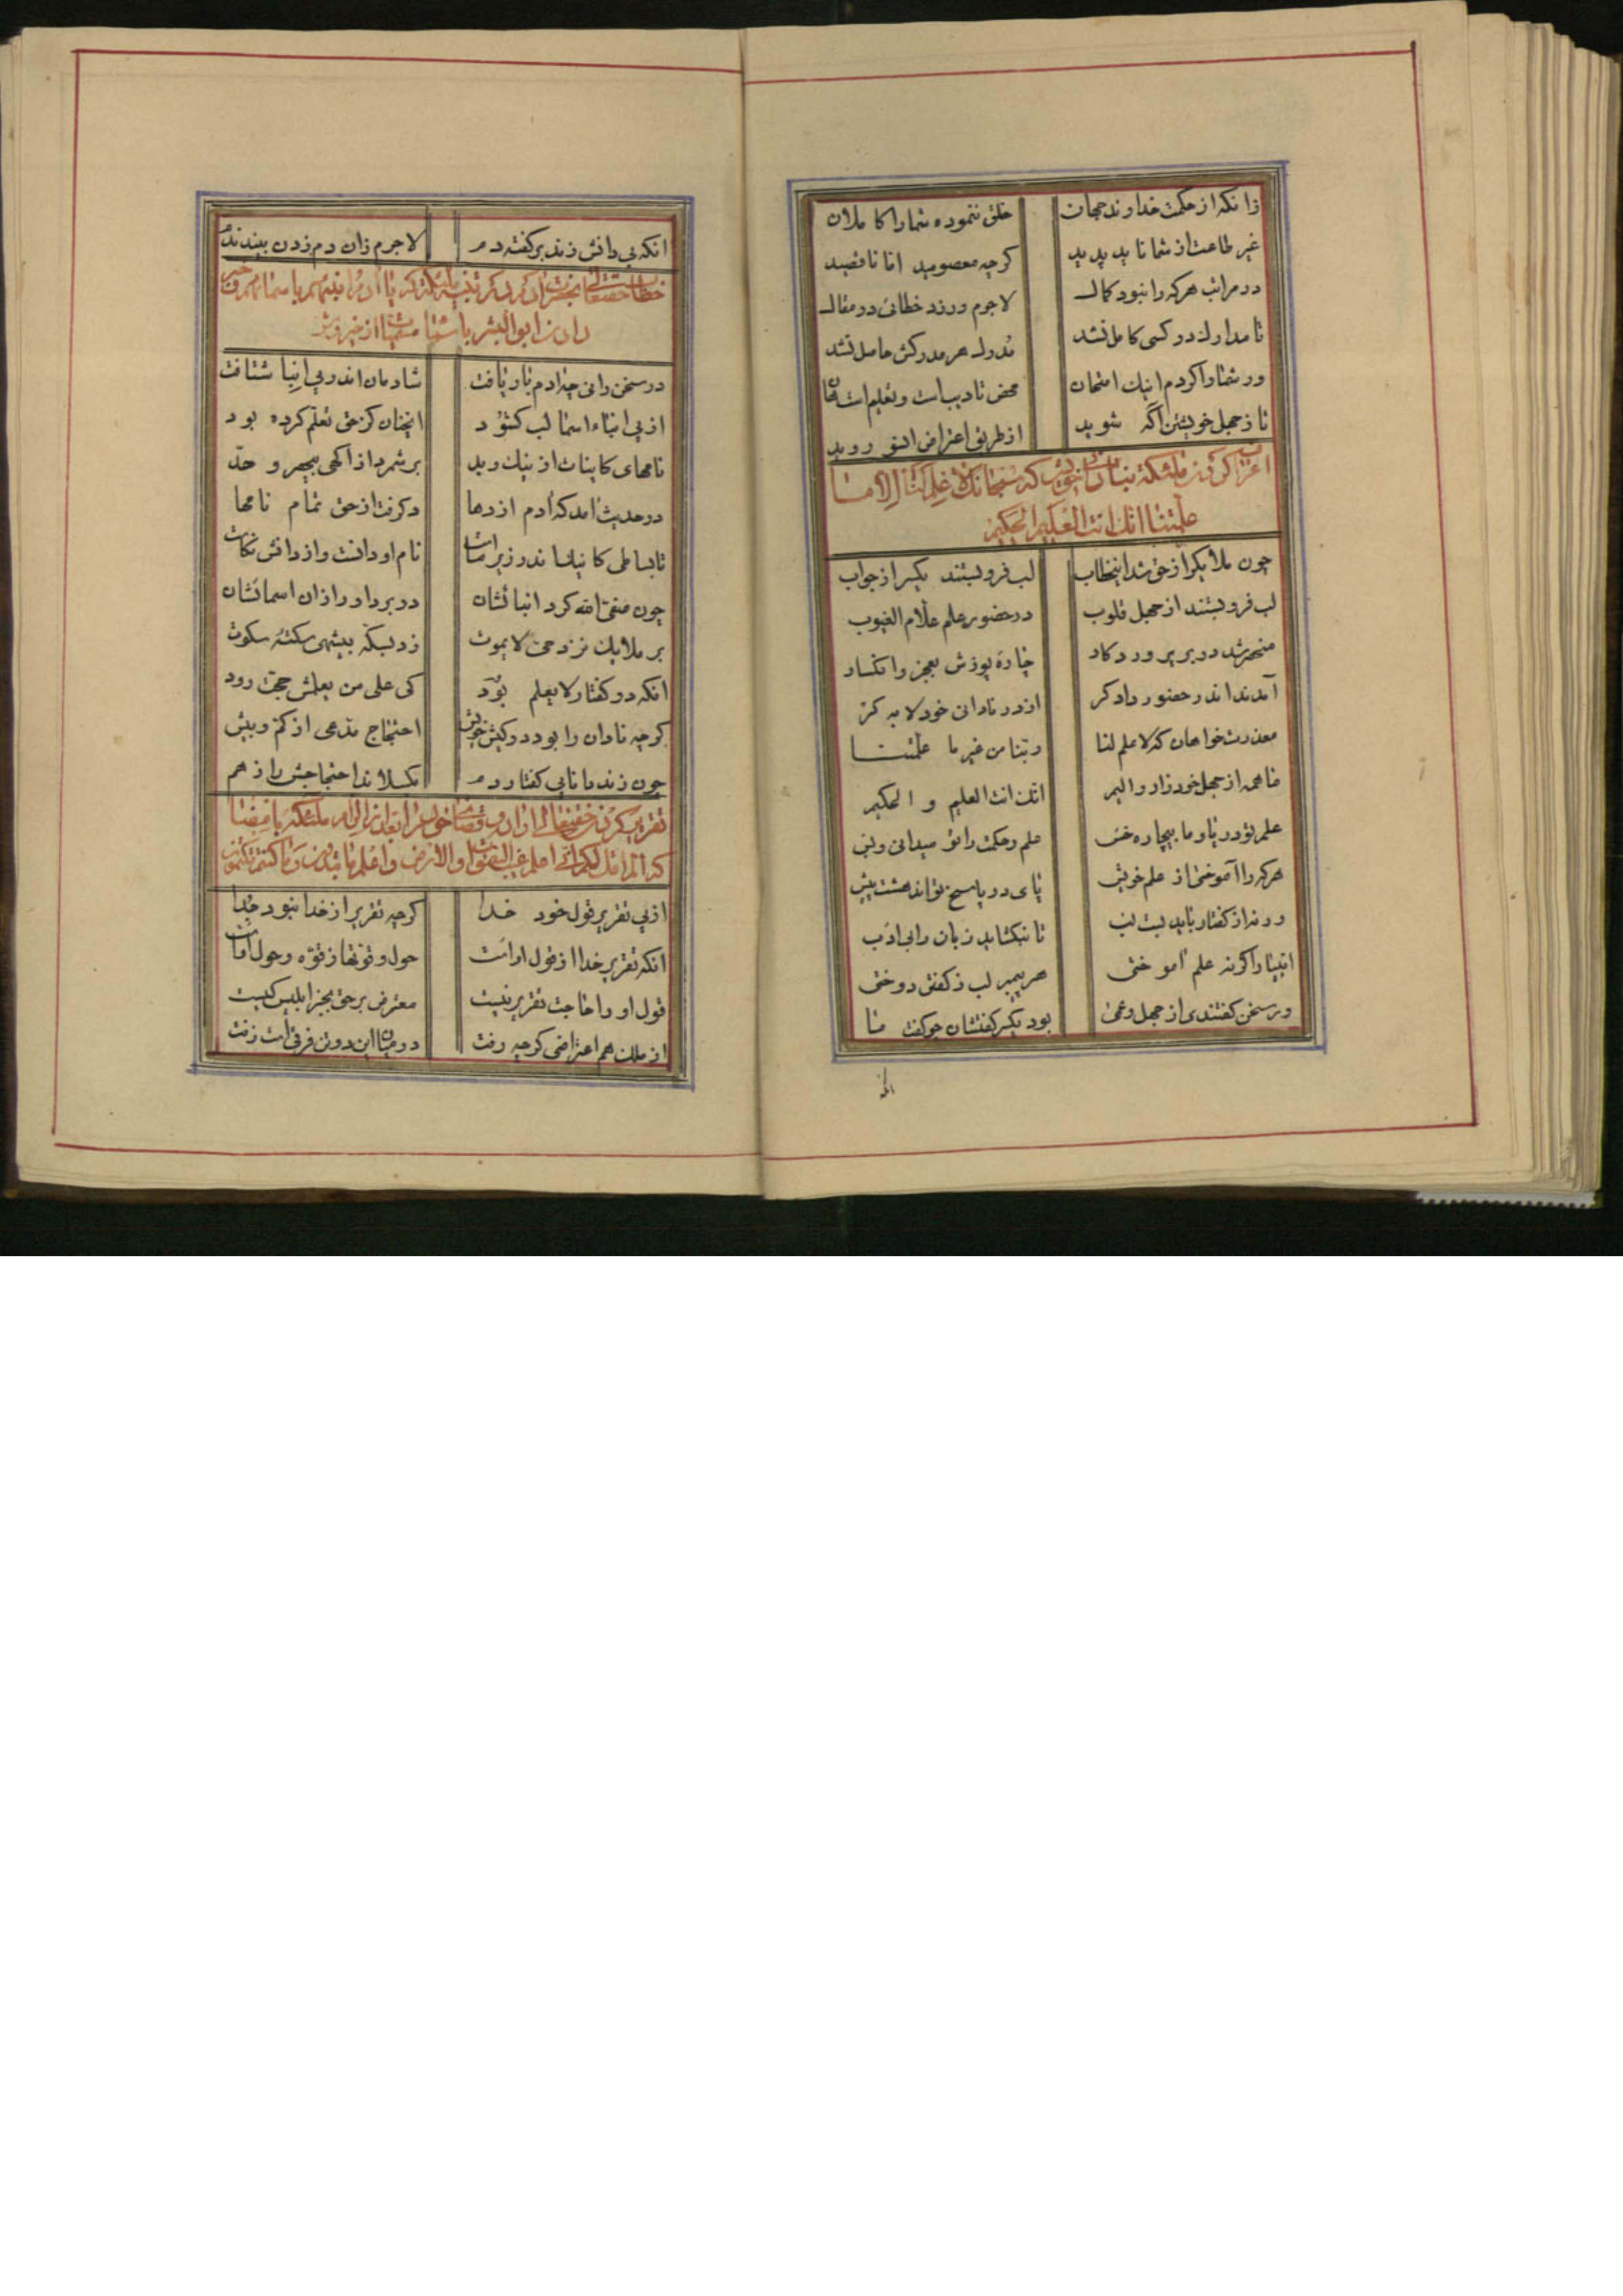 زانکه از حکمت خداوند جهان خلق ننموده شما را کاملان
غیر طاعت از شما ناید پدید کرچه معصومید اما ناقصید
در مراتب هرکه را نبود کمال لاجرم ورزد خطائی در مقال
تا مدارک در کسی کامل نشد مدرک هر مدرکش حاصل نشد
ور شما را کردم اینک امتحان محض تادیب است و تعلیم است هان
تا ز جهل خویشتن آکه شوید از طریق اعتراض اسو روید
اعتراف کردن ملئکه بنادانی خویش که سبحانک لا علم لنا الا ما
علمتنا انک انت العلیم الحکیم
چون ملایک را ز حق شد اینخطاب لب فرو بستند یکسر از جواب
لب فرو بستند از جهل قلوب در حضور علم علام الغیوب
منحصر شد در بر پروردکار چاره پوزش بعجز و انکسار
آمدند اندر حضور دادکر از در نادانی خود لابه کر
معذرت خواهان که لا علم لنا ربنا من غیر ما علمتنا
ما همه از جهل خود زار و الیم انک انت العلیم و الحکیم
علم تو دریا و ما بیچاره خس علم و حکمت را تو میدانی و بس
هرکه را آموختی از علم خویش پای در پاسخ تواند هشت پیش
ورنه از کفتار باید بست لب تا نبکشاید زبان را بی ادب
انبیا را کر نه علم آموختی هر پیمبر لب ز کفتن دوختی
ور سخن کفتندی از جهل و عمی بود یکسر کفتشان چو کفت ما
انکه
انکه بی دانش زند بر کفته دم لاجرم زان دم زدن بیند ندم
خطاب حضرت حقتعالی بحضرت آدم در تنبیه ملئکه که یا آدم انبئهم باسمائهم و خبر
دادن ابوالبشر باسماء مسمیات از خیر و شر
در سخن رانی چه ادم بار یافت شادمان اندر پی انبا شتافت
از پی انباء اسما لب کشود انچنان کز حق تعلم کرده بود
نامهای کاینات از نیک و بد بر شمرد از اکهی بیحصر و حد
در حدیث آمد که آدم از دها در کرفت از حق تمام نامها
تا بساطی کانیکسا ندر زیر ماست نام او دانست و از دانش نکاست
چون صفی الله کرد انبائشان در بر داور ازان اسمائشان
بر ملایک نزد حی لا یموت زد لبکه بیشهی سکته سکوت
انکه در کفتار لا یعلم بود کی علی من یعلمش حجت رود
کرچه نادان را بود در کیش خویش احتجاج مدعی از کم و بیش
چون زند دانا پی کفتار دم بکسلاند احتجاجش را ز هم
تقریر کردن حقتعالی قول خود را بعد از الزام ملئکه بافضا
که الم اقل لکم انی اعلم غیب السموات و الارض و اعلم ما تبدون و ما کنتم تکتمون
از پی تقریر قول خود خدا کرچه تقریر از خدا نبود جدا
انکه تقریر خدا از قول اوست حول و قوتها ز قوه و حول اوست
قول او را حاجت تقریر نیست معترض بر حق بجز ابلیس کیست
از ملک هم اعتراضی کرچه رفت در میان این دو تن فرقی است زفت